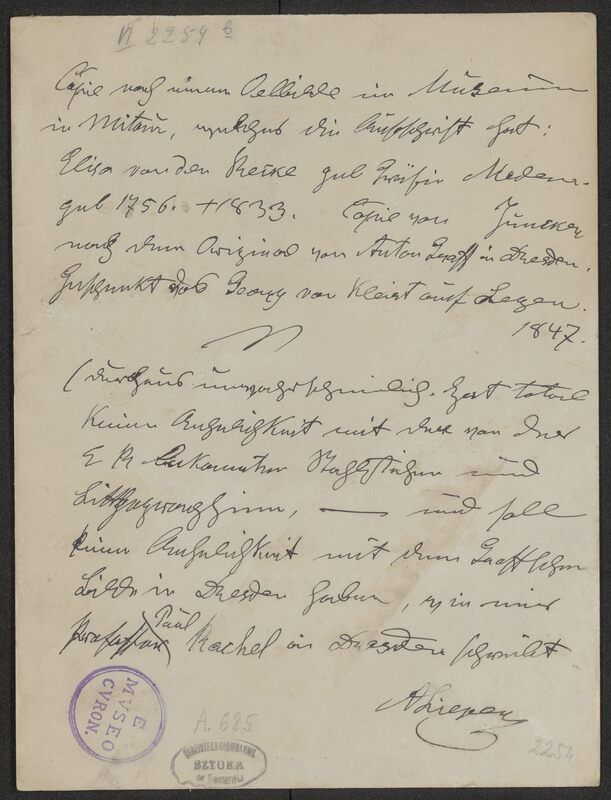 VI 2254 b
Copie nach einem Oelbilde im Museum
in Mitau, welches die Aufschrift hat:
Elisa von den Recke geb Gräfin Medem
geb 1756. +1833. Copie von Juncker
nach dem Original von Anton Graff in Dresden.
Geschenkt des Georg von Kleist auf Legen.
1847.
(durchaus unwahrscheinlich. Hat total
keine Aehnlichkeit mit den von der
E R bekannten Stahlstichen und
Lithographien, — und soll
keine Aehnlichkeit mit dem Graffschen
Bilde in Dresden haben, wie mir
Professor Paul Rachel in Dresden schreibt
E
MVSEO
CVRON.
A. 685
SZTUKA
2254